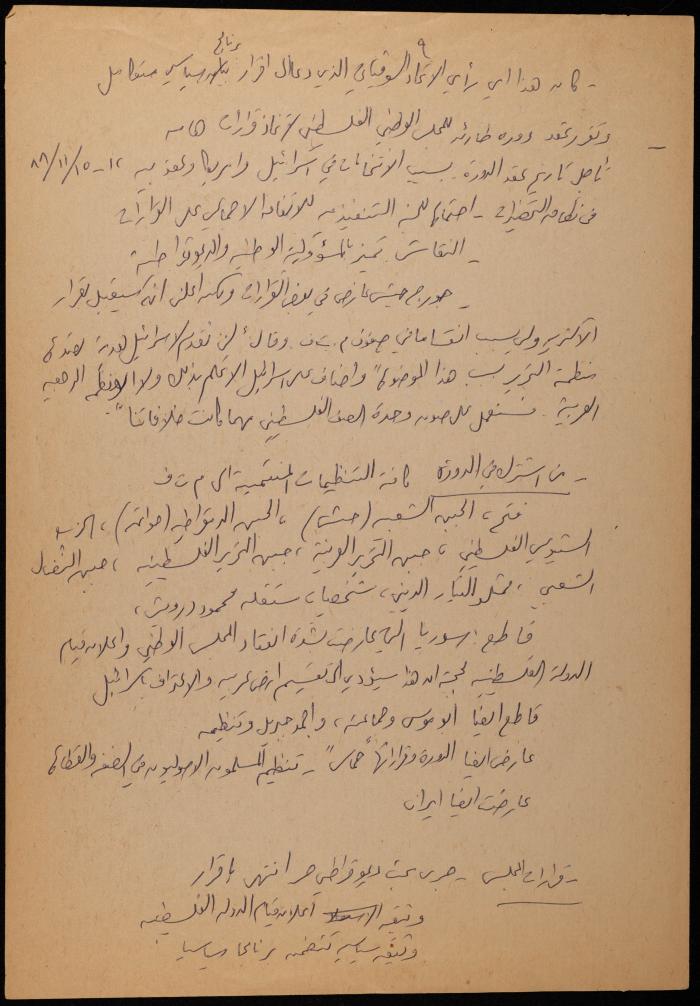 ٩
برنامج
- كان هذا اي رأي الاتحاد السوفياتي الذي دعا الى اقرار سياسي متكامل
- وتقرر عقد دورة طارئة للمجلس الوطني الفلسطيني لاتخاذ قرارات هامة
تأجل تاريخ عقد الدورة بسبب الانتخابات في اسرائيل وامريكا وعقد بين ١٢ - ١٥/١١/٨٨
- اجتماع للجنة التنفيذية للاتفاق الاجمالي على القرارات
- النقاش تميز بالمسؤولية الوطنية والديموقراطية
- جورج حبش عارض في بعض القرارات ولكنه اعلن انه سيقبل بقرار
الاكثرية ولن يسبب انقساما في صفوف م.ت.ف وقال "لن نقدم لاسرائيل هدية تصدع
منظمة التحرير بسبب هذا الموضوع" واضاف على اسرائيل الا تحلم بذلك ولا الانظمة الرجعية
العربية. سنعمل على صون وحدة الصف الفلسطيني مهما كانت خلافاتنا".
- من اشترك في الدورة كافة التنظيمات المنتمية الى م ت ف
فتح، الجبهة الشعبية (حبش)، الجبهة الديمقراطية (حواتمة)، الحزب
الشيوعي الفلسطيني، جبهة التحرير العربية، جبهة التحرير الفلسطينية، جبهة النضال
الشعبي، ممثلو التيار الديني، شخصيات مستقلة محمود درويش،
قاطع: سوريا التي عارضت بشدة انعقاد المجلس الوطني واعلان قيام
الدولة الفلسطينية بحجة ان هذا سيؤدي الى تقسيم ارض عربية والاعتراف باسرائيل
قاطع ايضا ابو موسى وجماعته، واحمد جبريل وتنظيمه
عارض ايضا الدورة وقراراتها "حماس" - تنظيم المسلمون الاصوليون في الضفة والقطاع
عارضت ايضا ايران
- قرارات المجلس - جرى بحث ديموقراطي حر انتهى باقرار
وثيقة اعلان قيام الدولة الفلسطينية
وثيقة سياسية تتضمن برنامجا سياسيا